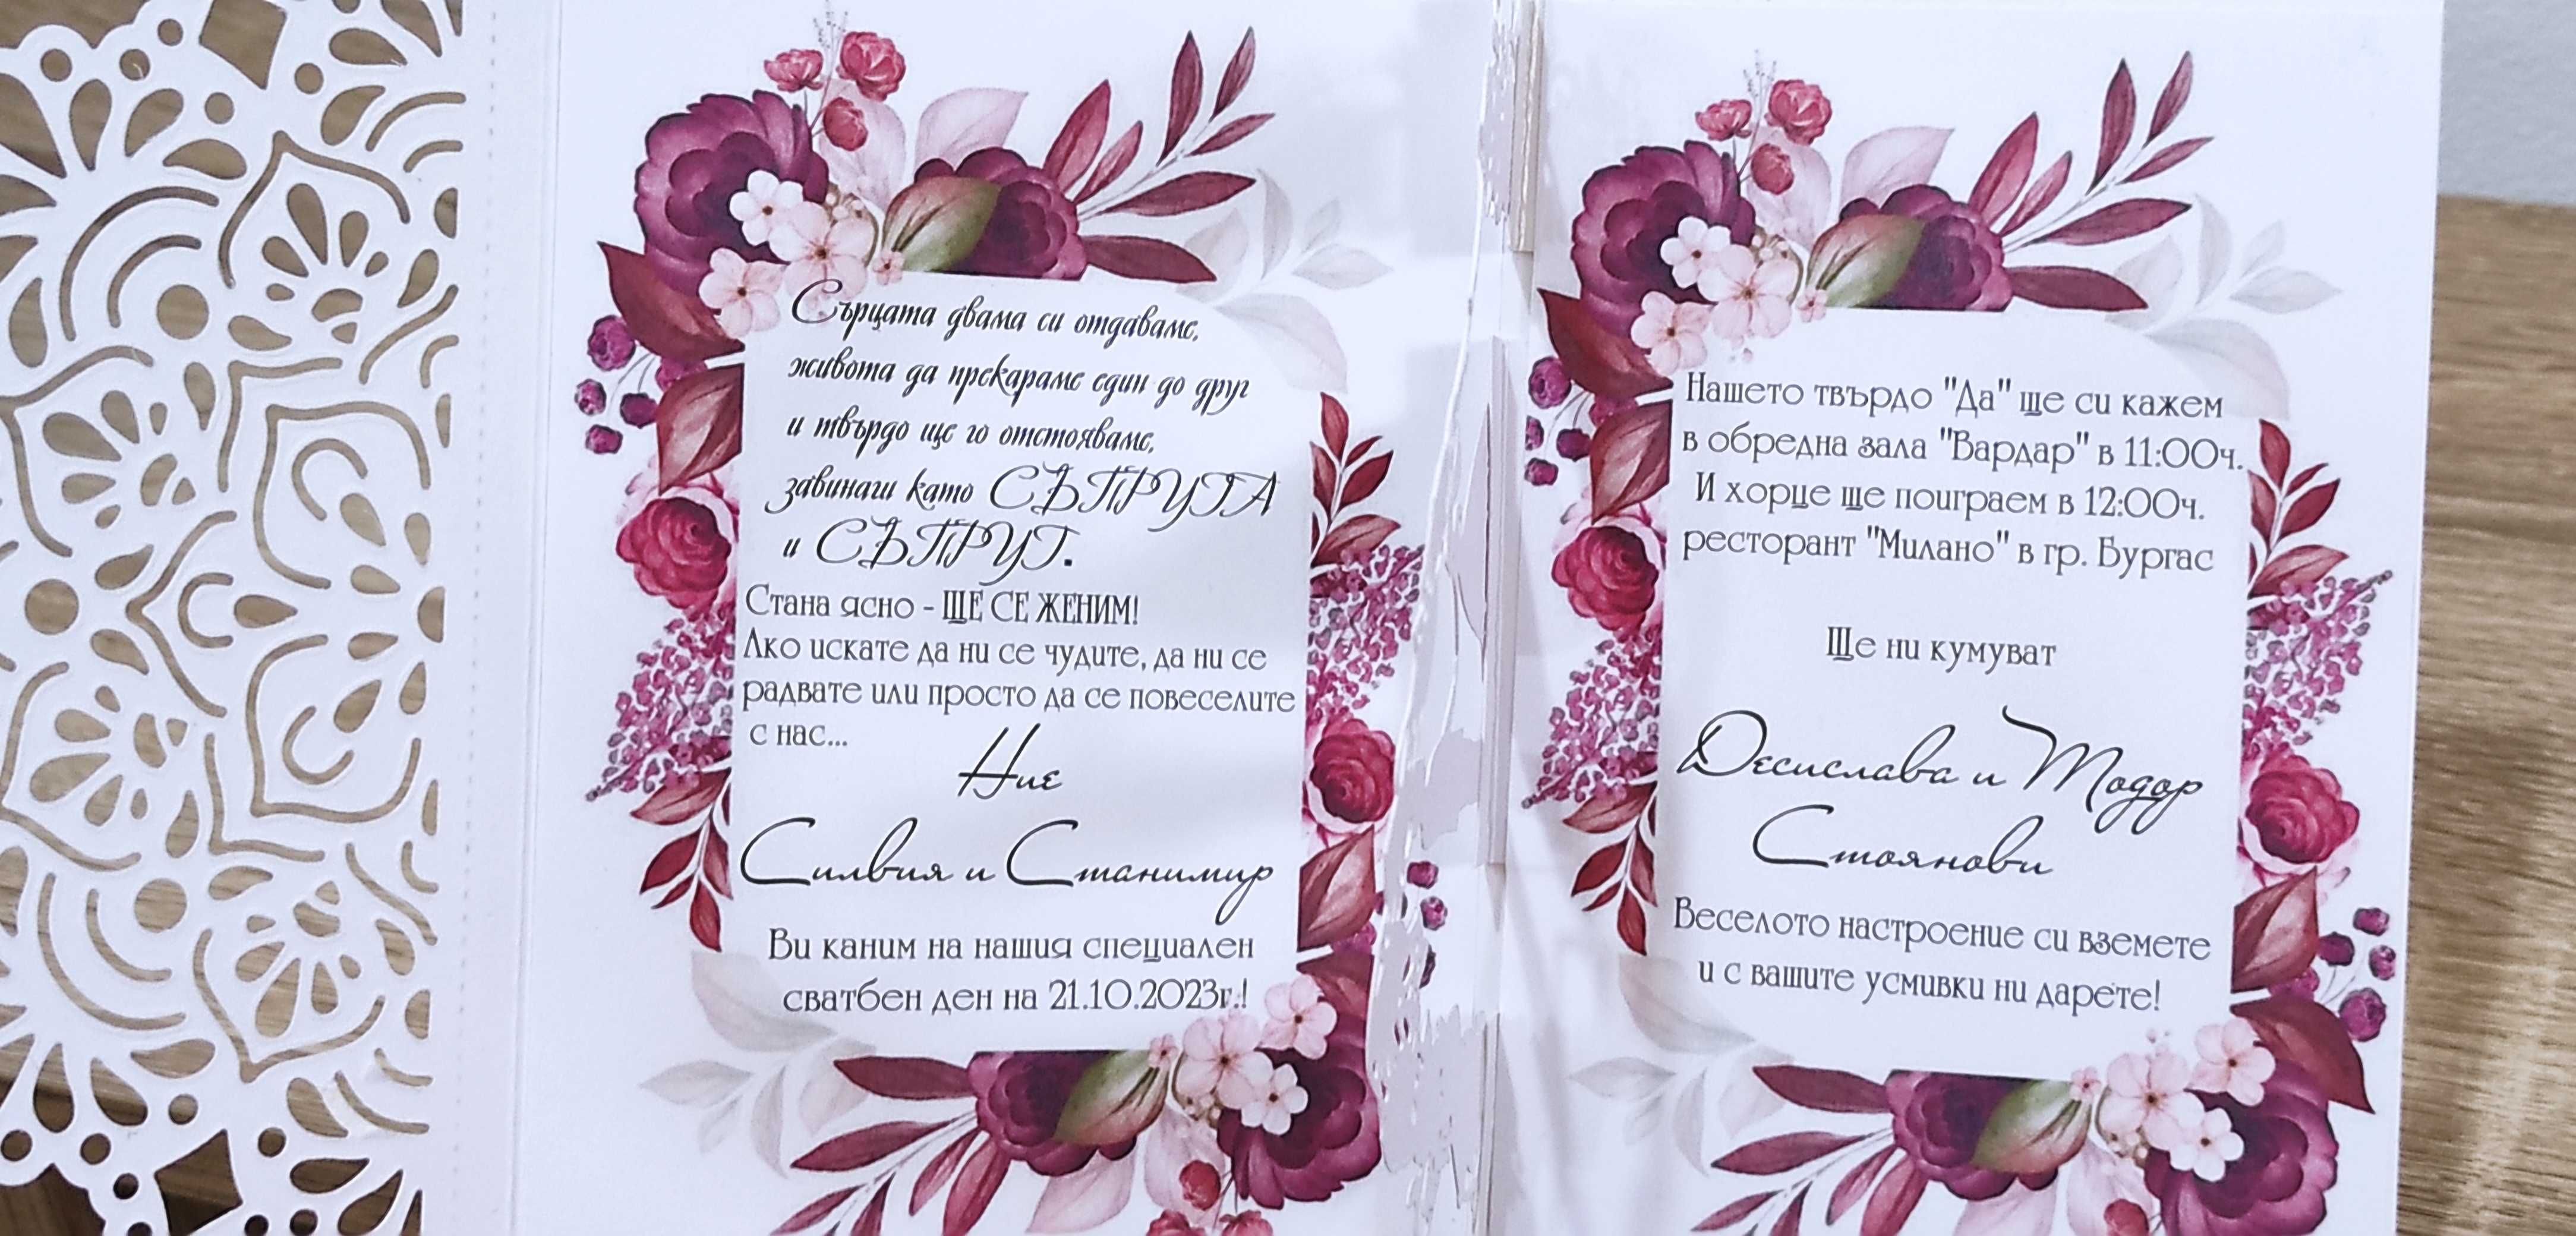 Сърцата двама си отдаваме,
живота да прекараме един до друг
и твърдо ще го отстояваме,
завинаги като СЪПРУГА
и СЪПРУГ.
Стана ясно - ЩЕ СЕ ЖЕНИМ!
Ако искате да ни се чудите, да ни се
радвате или просто да се повеселите
с нас...
Ние
Силвия и Станимир
Ви каним на нашия специален
сватбен ден на 21.10.2023г.!
Нашето твърдо "Да" ще си кажем
в обредна зала "Вардар" в 11:00ч.
И хорце ще поиграем в 12:00ч.
ресторант "Милано" в гр. Бургас
Ще ни кумуват
Десислава и Тодор
Стоянови
Веселото настроение си вземете
и с вашите усмивки ни дарете!